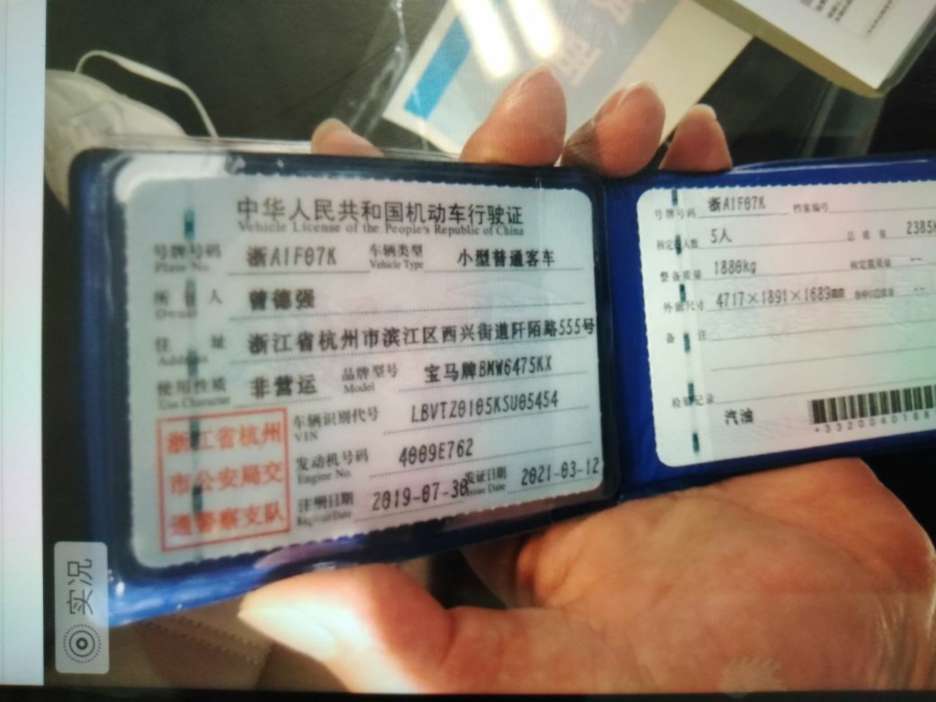 中华人民共和国机动车行驶证
Vehicle License of the People's Republic of China
号牌号码 浙A1F07K 车辆类型 小型普通客车
Plate No. Vehicle Type
所有人 曾德强
Owner
住址 浙江省杭州市滨江区西兴街道阡陌路555号
Address
使用性质 非营运 品牌型号 宝马牌BMW6475KX
Use Character Model
浙江省杭州
市公安局交
通警察支队
车辆识别代号 LBVTZ0105KSU05454
VIN
发动机号码 4009E762
Engine No.
注册日期 2019-07-30 发证日期 2021-03-12
Register Date Issue Date
号牌号码 浙A1F07K 档案编号
核定载人数 5人 总质量 2385k
整备质量 1880kg 核定载质量 --
外廓尺寸 4717×1891×1689mm --
备注
检验记录
汽油
实况